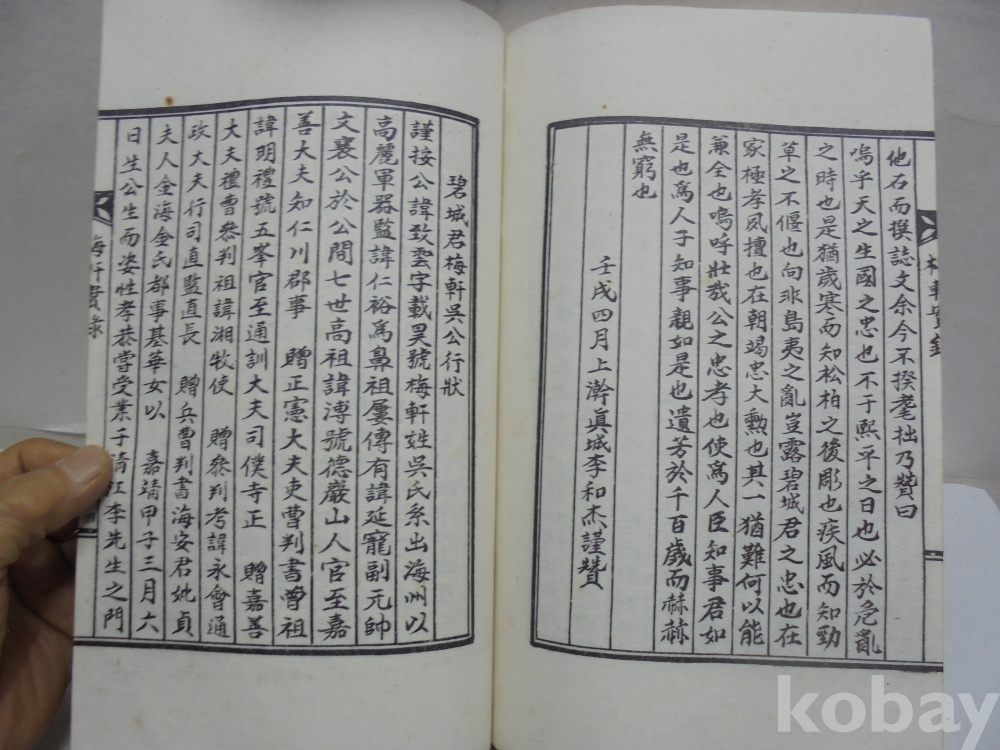 他石而撰誌文余今不揆耄拙乃贊曰
嗚乎天之生國之忠也不于熙平之日也必於危亂
之時也是猶歲寒而知松柏之後彫也疾風而知勁
草之不偃也向非島夷之亂豈露碧城君之忠也在
家極孝夙擅也在朝竭忠大勲也其一猶難何以能
兼全也嗚呼壯哉公之忠孝也使爲人臣知事君如
是也爲人子知事親如是也遺芳於千百歲而赫赫
無窮也
壬戌四月上澣眞城李和杰謹贊
碧城君梅軒吳公行狀
謹按公諱致雲字載昊號梅軒姓吳氏系出海州以
高麗軍器監諱仁裕爲鼻祖屢傳有諱延寵副元帥
文襄公於公間七世高祖諱溥號德巖山人官至嘉
善大夫知仁川郡事 贈正憲大夫吏曹判書曾祖
諱明禮號五峯官至通訓大夫司僕寺正 贈嘉善
大夫禮曹叅判祖諱湘牧使 贈叅判考諱永會通
政大夫行司直監直長 贈兵曹判書海安君妣貞
夫人金海金氏都事基華女以 嘉靖甲子三月六
日生公生而姿性孝恭嘗受業于清江李先生之門
梅軒實錄
kobay